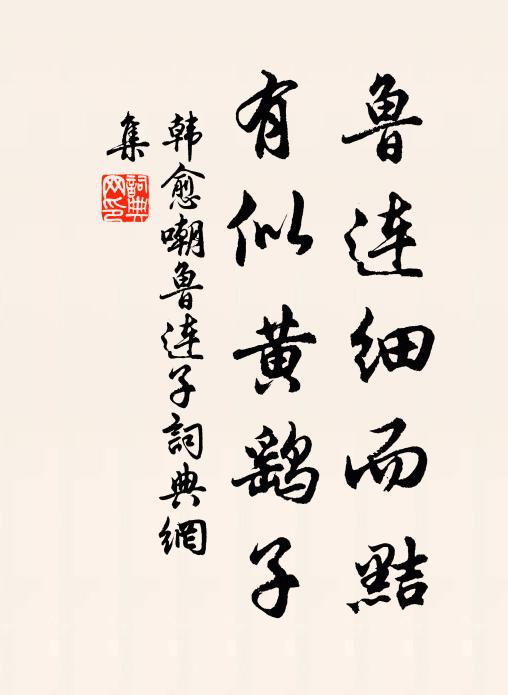 鲁连细而黠
有似黄鹞子
韩愈嘲鲁连子詞典網
集
詞典網印